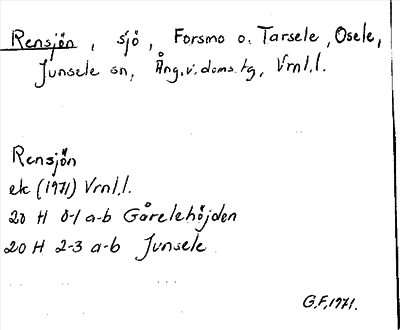 Rensjön, sjö, Forsmo o. Tarsele, Osele,
Junsele sn, Ång.v.doms.tg, Vrnl.l.
Rensjön
ek (1971) Vrnl.l.
20 H 0-1 a-b Gårelehöjden
20 H 2-3 a-b Junsele
G.F, 1971.